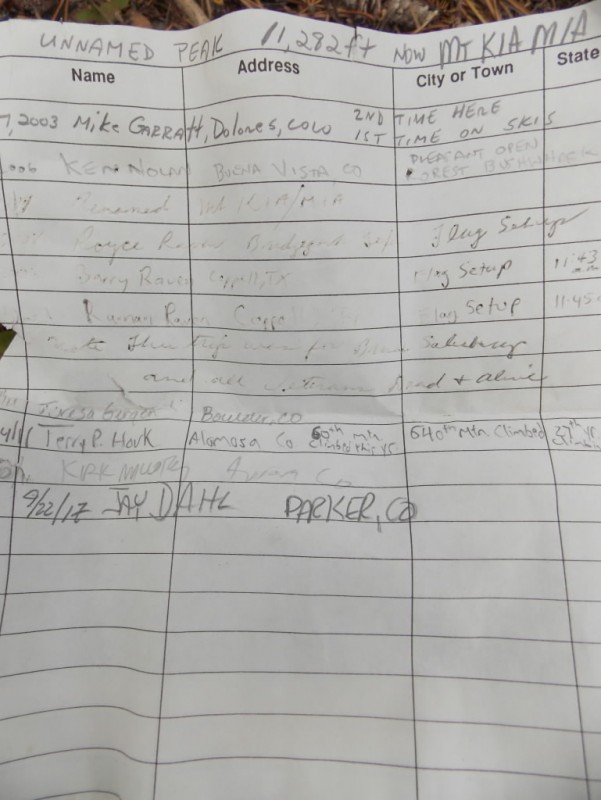 UNNAMED PEAK 11,282 ft NOW MT KIA MIA
Name Address City or Town State
7, 2003 Mike GARRATT, Dolores, COLO 2ND TIME HERE
1ST TIME ON SKIS
KEN NOLAN BUENA VISTA CO PLEASANT OPEN
FOREST BUSHWHACK
Renamed Mt KIA/MIA
Royce Raven Flag Setup
Barry Raven Coppell, TX Flag Setup 11:43
Raven Coppell Flag Setup 11:45
Note This trip was for Salisbury
and all Veterans Dead + alive
Teresa Gergen Boulder, CO
Terry P. Houk Alamosa Co 60th mtn climbed this yr. 640th Mtn Climbed 27th yr
KIRK CO
9/22/17 JAY DAHL PARKER, CO